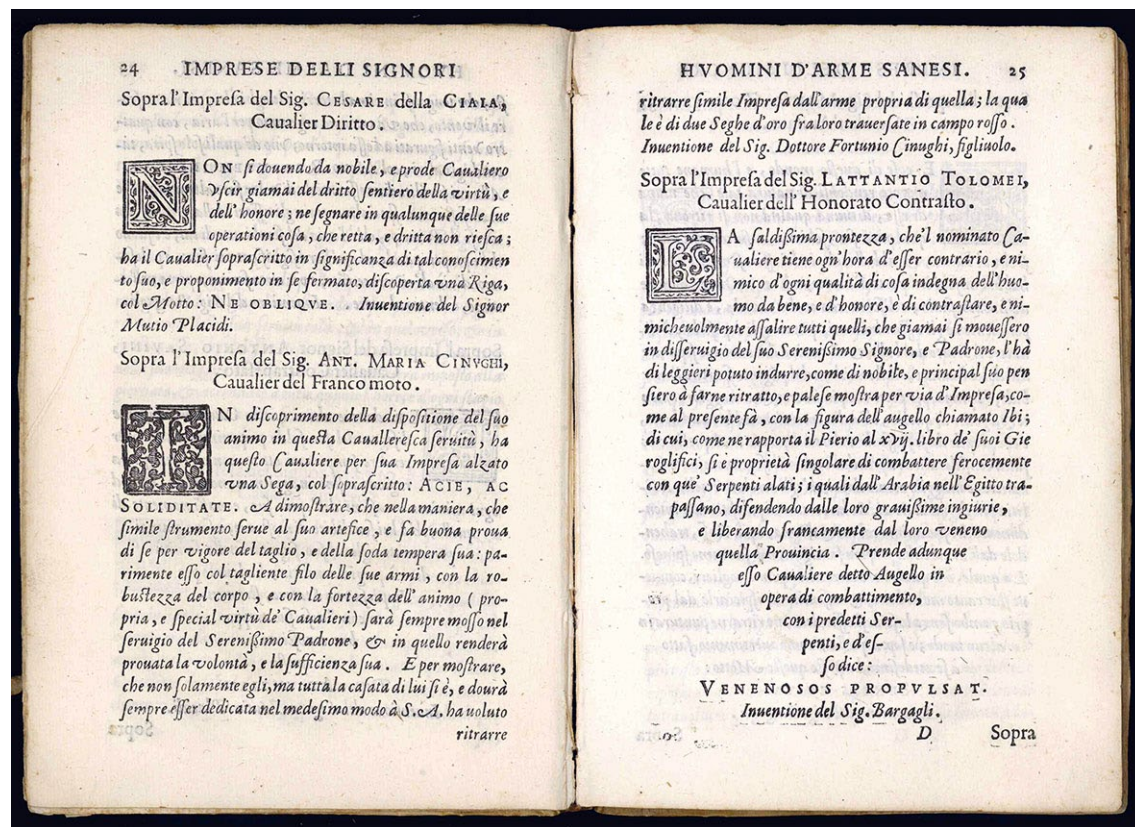 24 IMPRESE DELLI SIGNORI
Sopra l'Impreſa del Sig. CESARE della CIAIA,
Caualier Diritto.
NON ſi douendo da nobile, e prode Caualiero
vſcir giamai del dritto ſentiero della virtù, e
dell'honore; ne ſegnare in qualunque delle ſue
operationi coſa, che retta, e dritta non rieſca;
ha il Caualier ſopraſcritto in ſignificanza di tal conoſcimen
to ſuo, e proponimento in ſe fermato, diſcoperta vna Riga,
col Motto: NE OBLIQVE. Inuentione del Signor
Mutio Placidi.
Sopra l'Impreſa del Sig. ANT. MARIA CINVGHI,
Caualier del Franco moto.
IN diſcoprimento della diſpoſitione del ſuo
animo in queſta Cauallereſca ſeruitù, ha
queſto Caualiere per ſua Impreſa alzato
vna Sega, col ſopraſcritto: ACIE, AC
SOLIDITATE. A dimoſtrare, che nella maniera, che
ſimile ſtrumento ſerue al ſuo artefice, e fa buona proua
di ſe per vigore del taglio, e della ſoda tempera ſua: pa-
rimente eſſo col tagliente filo delle ſue armi, con la ro-
buſtezza del corpo, e con la fortezza dell'animo (pro-
pria, e ſpecial virtù de' Caualieri) ſarà ſempre moſſo nel
ſeruigio del Sereniſſimo Padrone, & in quello renderà
prouata la volontà, e la ſufficienza ſua. E per moſtrare,
che non ſolamente egli, ma tutta la caſata di lui ſi è, e dourà
ſempre eſſer dedicata nel medeſimo modo à S. A. ha voluto
ritrarre
HVOMINI D'ARME SANESI. 25
ritrarre ſimile Impreſa dall'arme propria di quella; la qua
le è di due Seghe d'oro fra loro trauerſate in campo roſſo.
Inuentione del Sig. Dottore Fortunio Cinughi, figliuolo.
Sopra l'Impreſa del Sig. LATTANTIO TOLOMEI,
Caualier dell'Honorato Contraſto.
LA ſaldiſſima prontezza, che'l nominato Ca-
ualiere tiene ogn'hora d'eſſer contrario, e ni-
mico d'ogni qualità di coſa indegna dell'huo-
mo da bene, e d'honore, e di contraſtare, e ni-
micheuolmente aſſalire tutti quelli, che giamai ſi moueſſero
in diſſeruigio del ſuo Sereniſſimo Signore, e Padrone, l'hà
di leggieri potuto indurre, come di nobile, e principal ſuo pen
ſiero à farne ritratto, e paleſe moſtra per via d'Impreſa, co-
me al preſente fà, con la figura dell'augello chiamato Ibi;
di cui, come ne rapporta il Pierio al xvij. libro de' ſuoi Gie
roglifici, ſi è proprietà ſingolare di combattere ferocemente
con que' Serpenti alati; i quali dall'Arabia nell'Egitto tra-
paſſano, difendendo dalle loro grauiſſime ingiurie,
e liberando francamente dal loro veneno
quella Prouincia. Prende adunque
eſſo Caualiere detto Augello in
opera di combattimento,
con i predetti Ser-
penti, e d'eſ-
ſo dice:
VENENOSOS PROPVLSAT.
Inuentione del Sig. Bargagli.
D Sopra